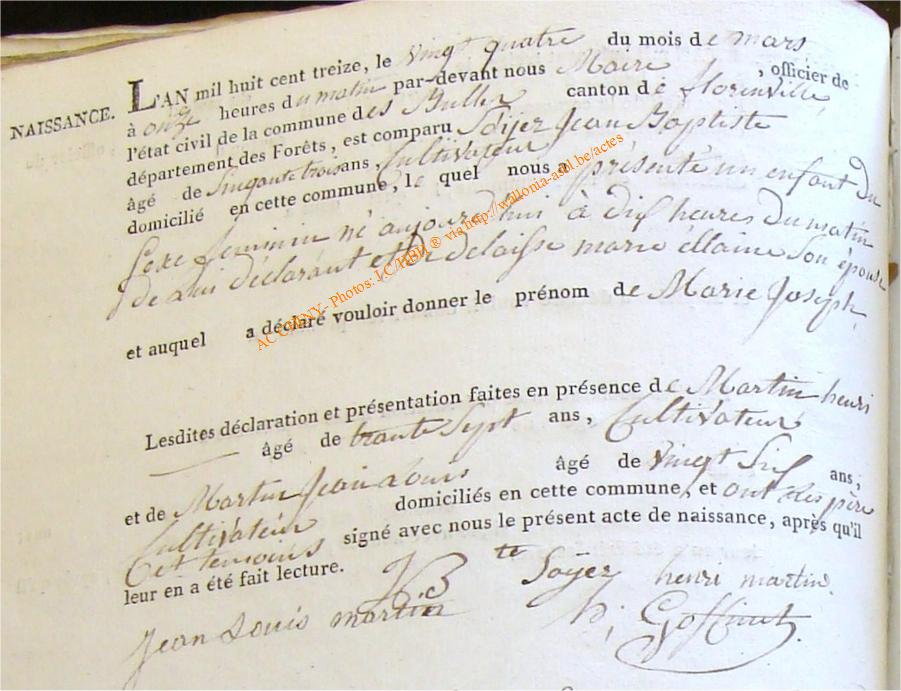 NAISSANCE. L'AN mil huit cent treize, le vingt quatre du mois de mars
à onze heures du matin par-devant nous Maire, officier de
l'état civil de la commune des Bulles canton de florenville,
département des Forêts, est comparu Soÿez Jean Baptiste
âgé de Sinquante trois ans, Cultivateur
domicilié en cette commune, le quel nous a présenté un enfant du
Sexe feminin né aujourd'hui à dix heures du matin
de lui déclarant et de delaisse marie éllaine Son épouse
et auquel a déclaré vouloir donner le prénom de Marie Joseph,
Lesdites déclaration et présentation faites en présence de Martin henri
âgé de trante Sept ans, Cultivateur
et de Martin Jean Louis âgé de vingt Six ans,
Cultivateur domiciliés en cette commune, et ont les père
et temoins signé avec nous le présent acte de naissance, après qu'il
leur en a été fait lecture.
JB te Soyez henri martin
Jean Louis martin Goffinet
AC CHINY - Photos: LC/HBH ® via http://wallonia-asbl.be/actes